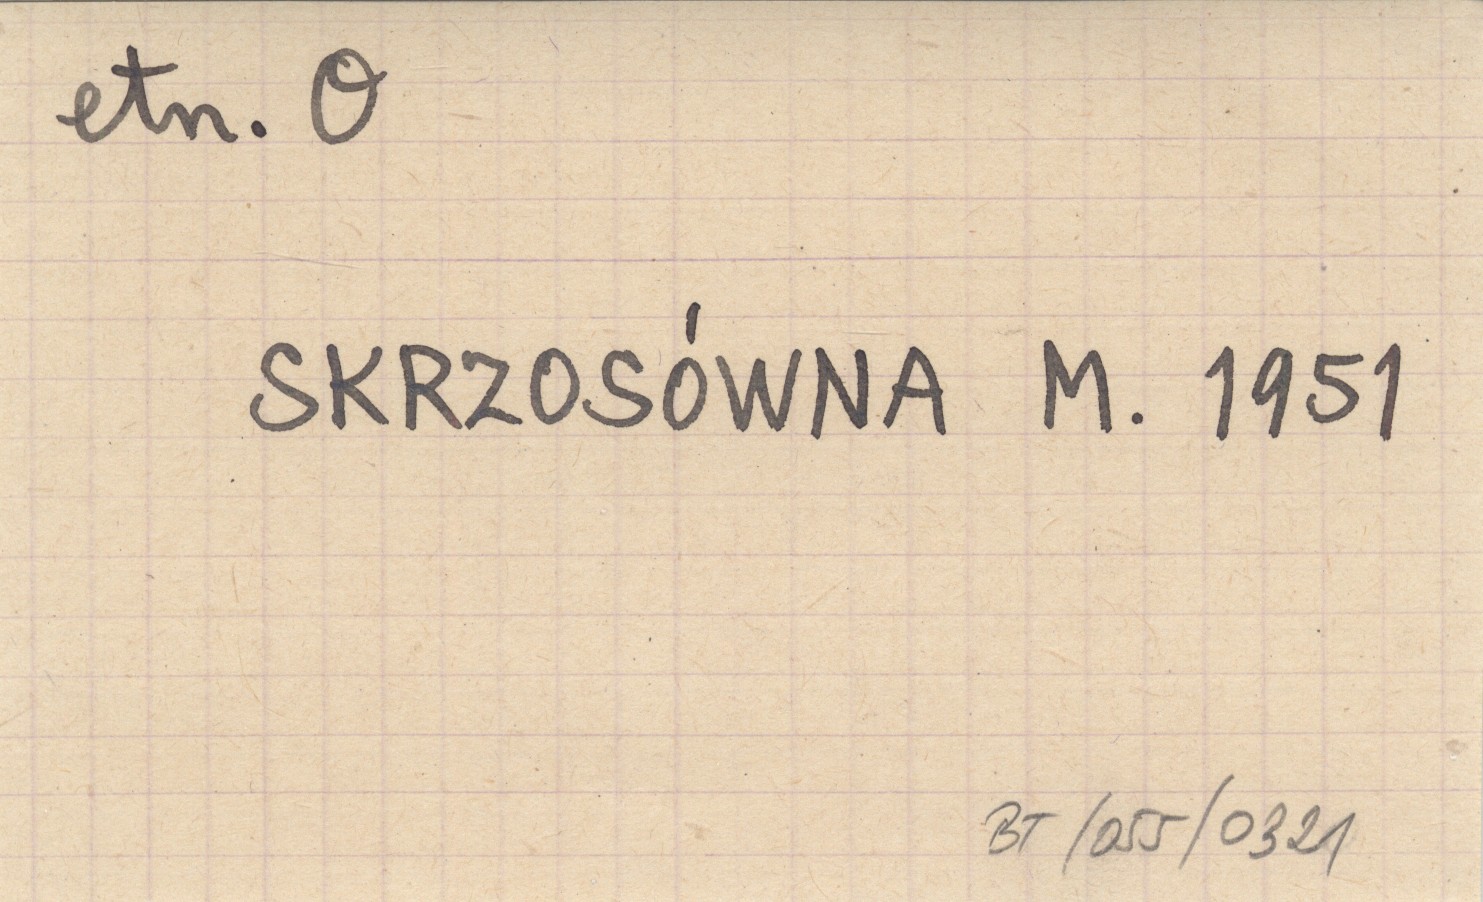 etn. O
SKRZOSÓWNA M. 1951
BT/055/0321